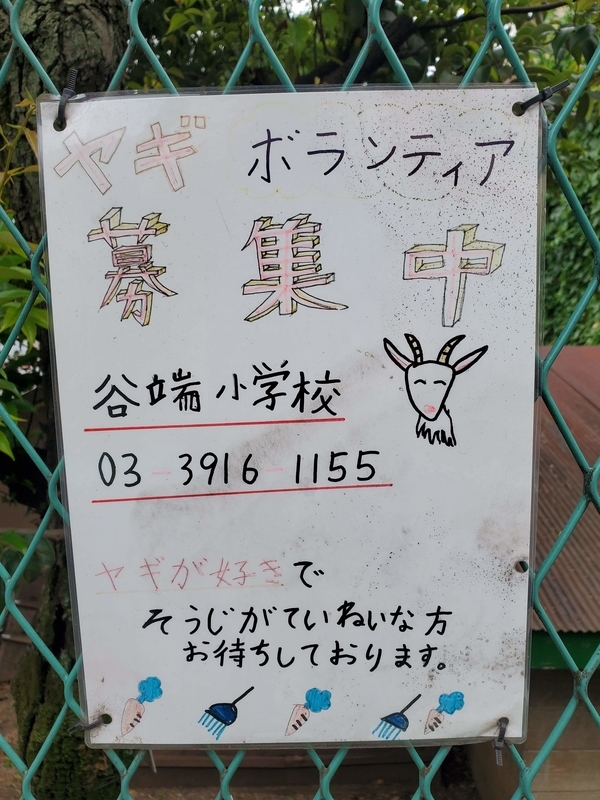 ヤギ ボランティア
募集中
谷端小学校
03-3916-1155
ヤギが好きで
そうじがていねいな方
お待ちしております。